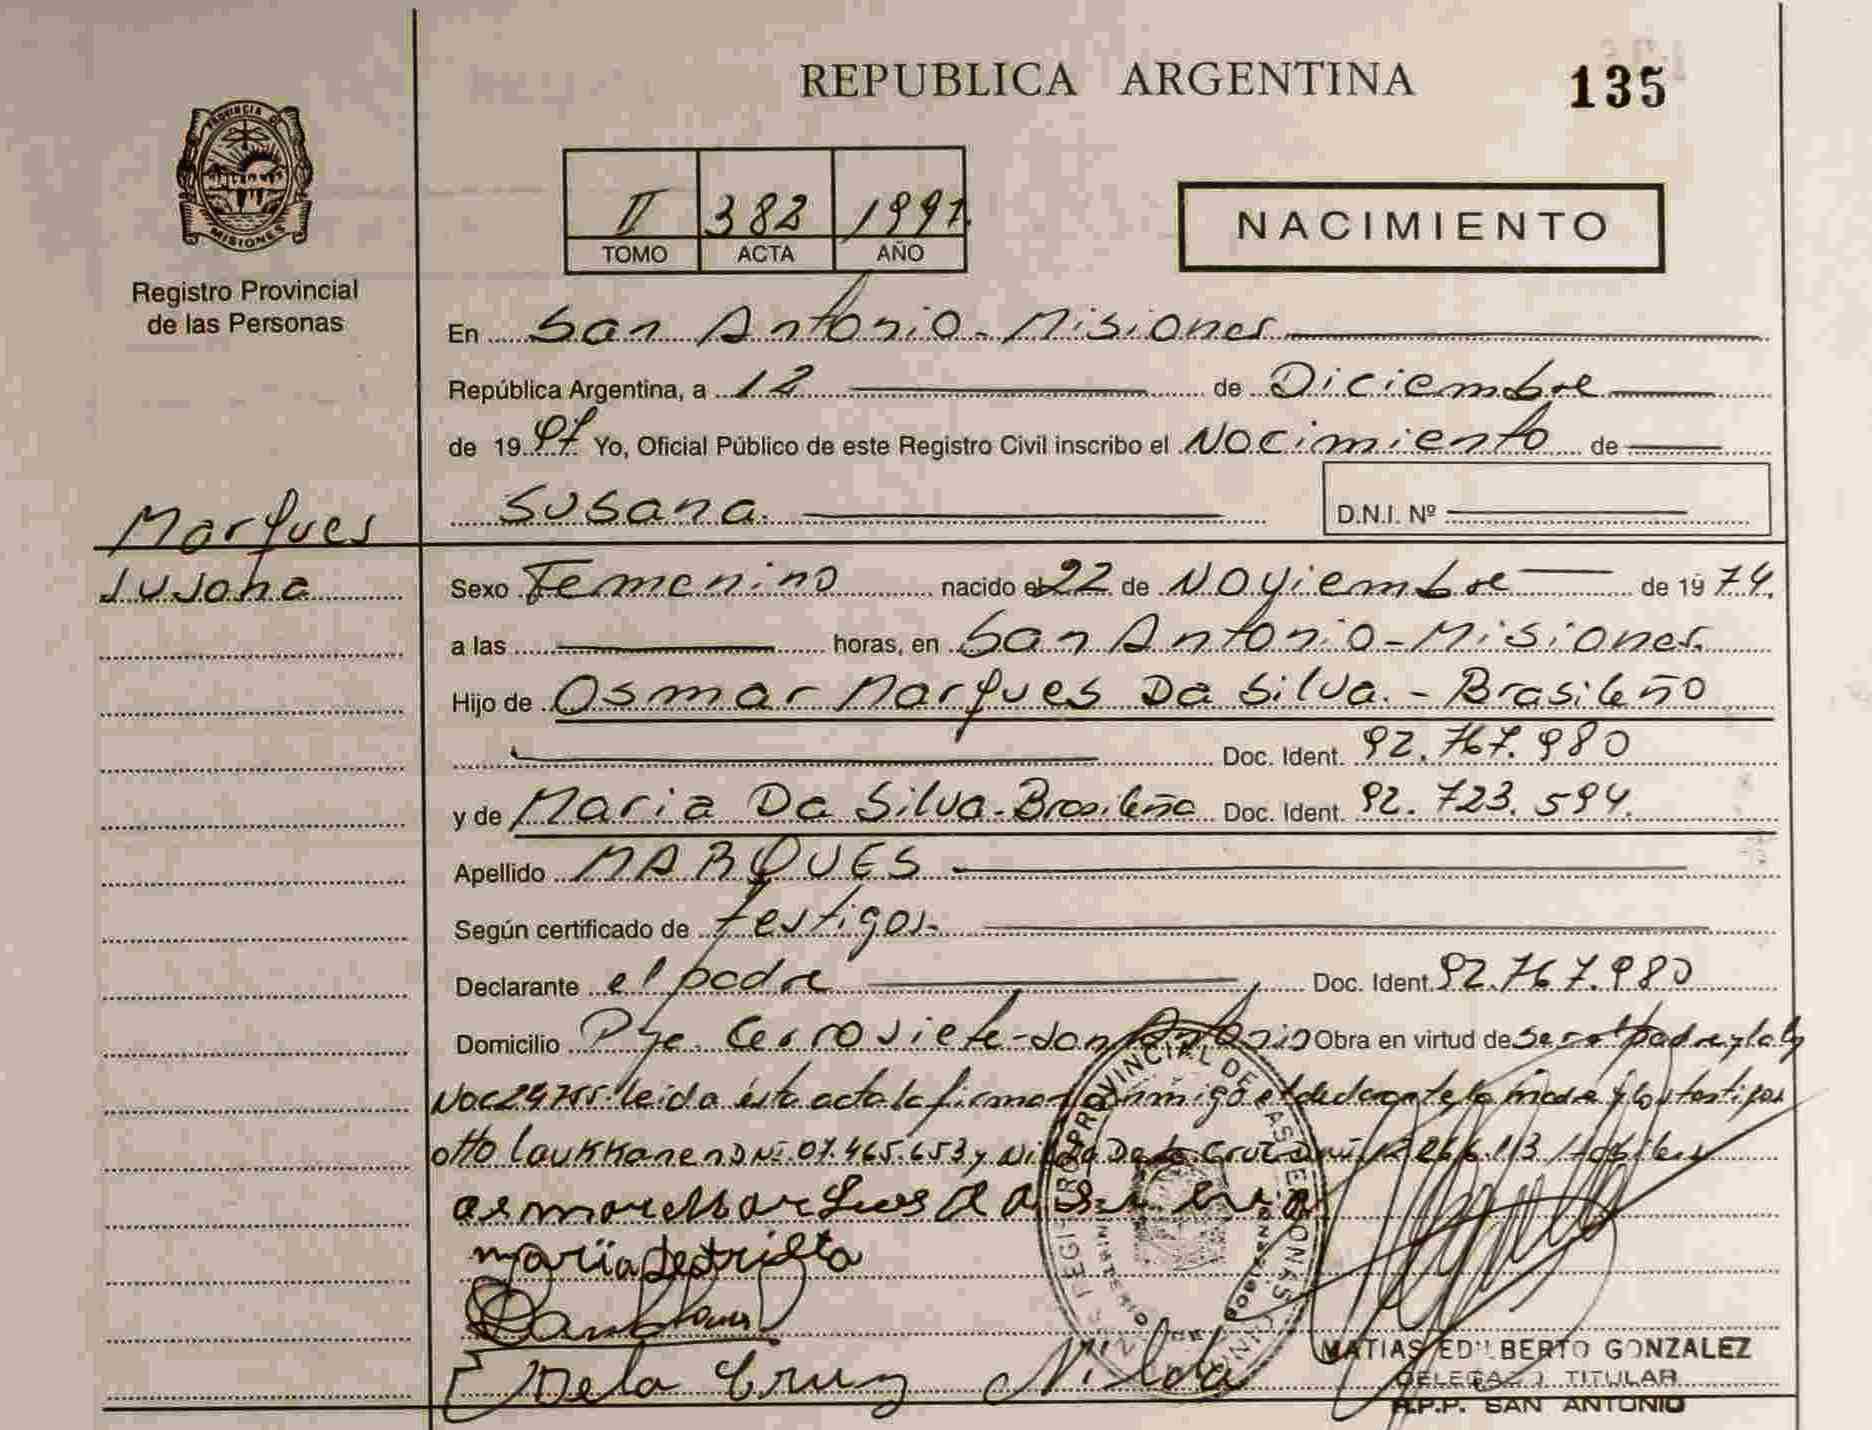 REPUBLICA ARGENTINA
135
PROVINCIA DE
MISIONES
Registro Provincial
de las Personas
II 382 1997.
TOMO ACTA AÑO
NACIMIENTO
En San Antonio - Misiones
República Argentina, a 12 de Diciembre
de 1997 Yo, Oficial Público de este Registro Civil inscribo el Nacimiento de
Susana. D.N.I. Nº
Marques
Susana
Sexo Femenino nacido el 22 de Noviembre de 1974.
a las horas, en San Antonio - Misiones.
Hijo de Osmar Marques Da Silva. - Brasileño
Doc. Ident. 92.767.980
y de Maria Da Silva - Brasileña Doc. Ident. 92.723.594.
Apellido MARQUES
Según certificado de testigos.
Declarante el padre Doc. Ident. 92.767.980
Domicilio Pje. Cerro Siete - San Antonio Obra en virtud de ser el padre y la ley
Nac 24755. leida ésta acta la firman conmigo el declarante, la madre y los testigos
Otto Laukkanen DNI: 07.465.653 y Nilda De la Cruz DNI 266.113 Hábiles
REGISTRO PROVINCIAL DE LAS PERSONAS
maria
De la Cruz Nilda
MATIAS EDILBERTO GONZALEZ
DELEGADO TITULAR
R.P.P. SAN ANTONIO